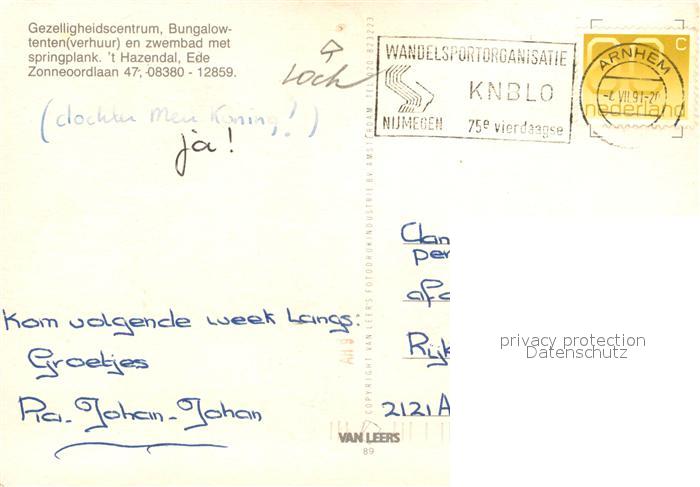 Gezelligheidscentrum, Bungalow-
tenten(verhuur) en zwembad met
springplank. 't Hazendal, Ede
Zonneoordlaan 47, 08380 - 12859.
toch
(dochter Meu Koning!)
ja!
WANDELSPORTORGANISATIE
KNBLO
NIJMEGEN 75e vierdaagse
ARNHEM
C
nederland
COPYRIGHT VAN LEER'S FOTODRUKINDUSTRIE BV. AMSTERDAM
Clan
per
afd
Kom volgende week langs:
Groetjes
Ria-Johan-Johan
Rijk
2121 A
privacy protection
Datenschutz
VAN LEERS
89